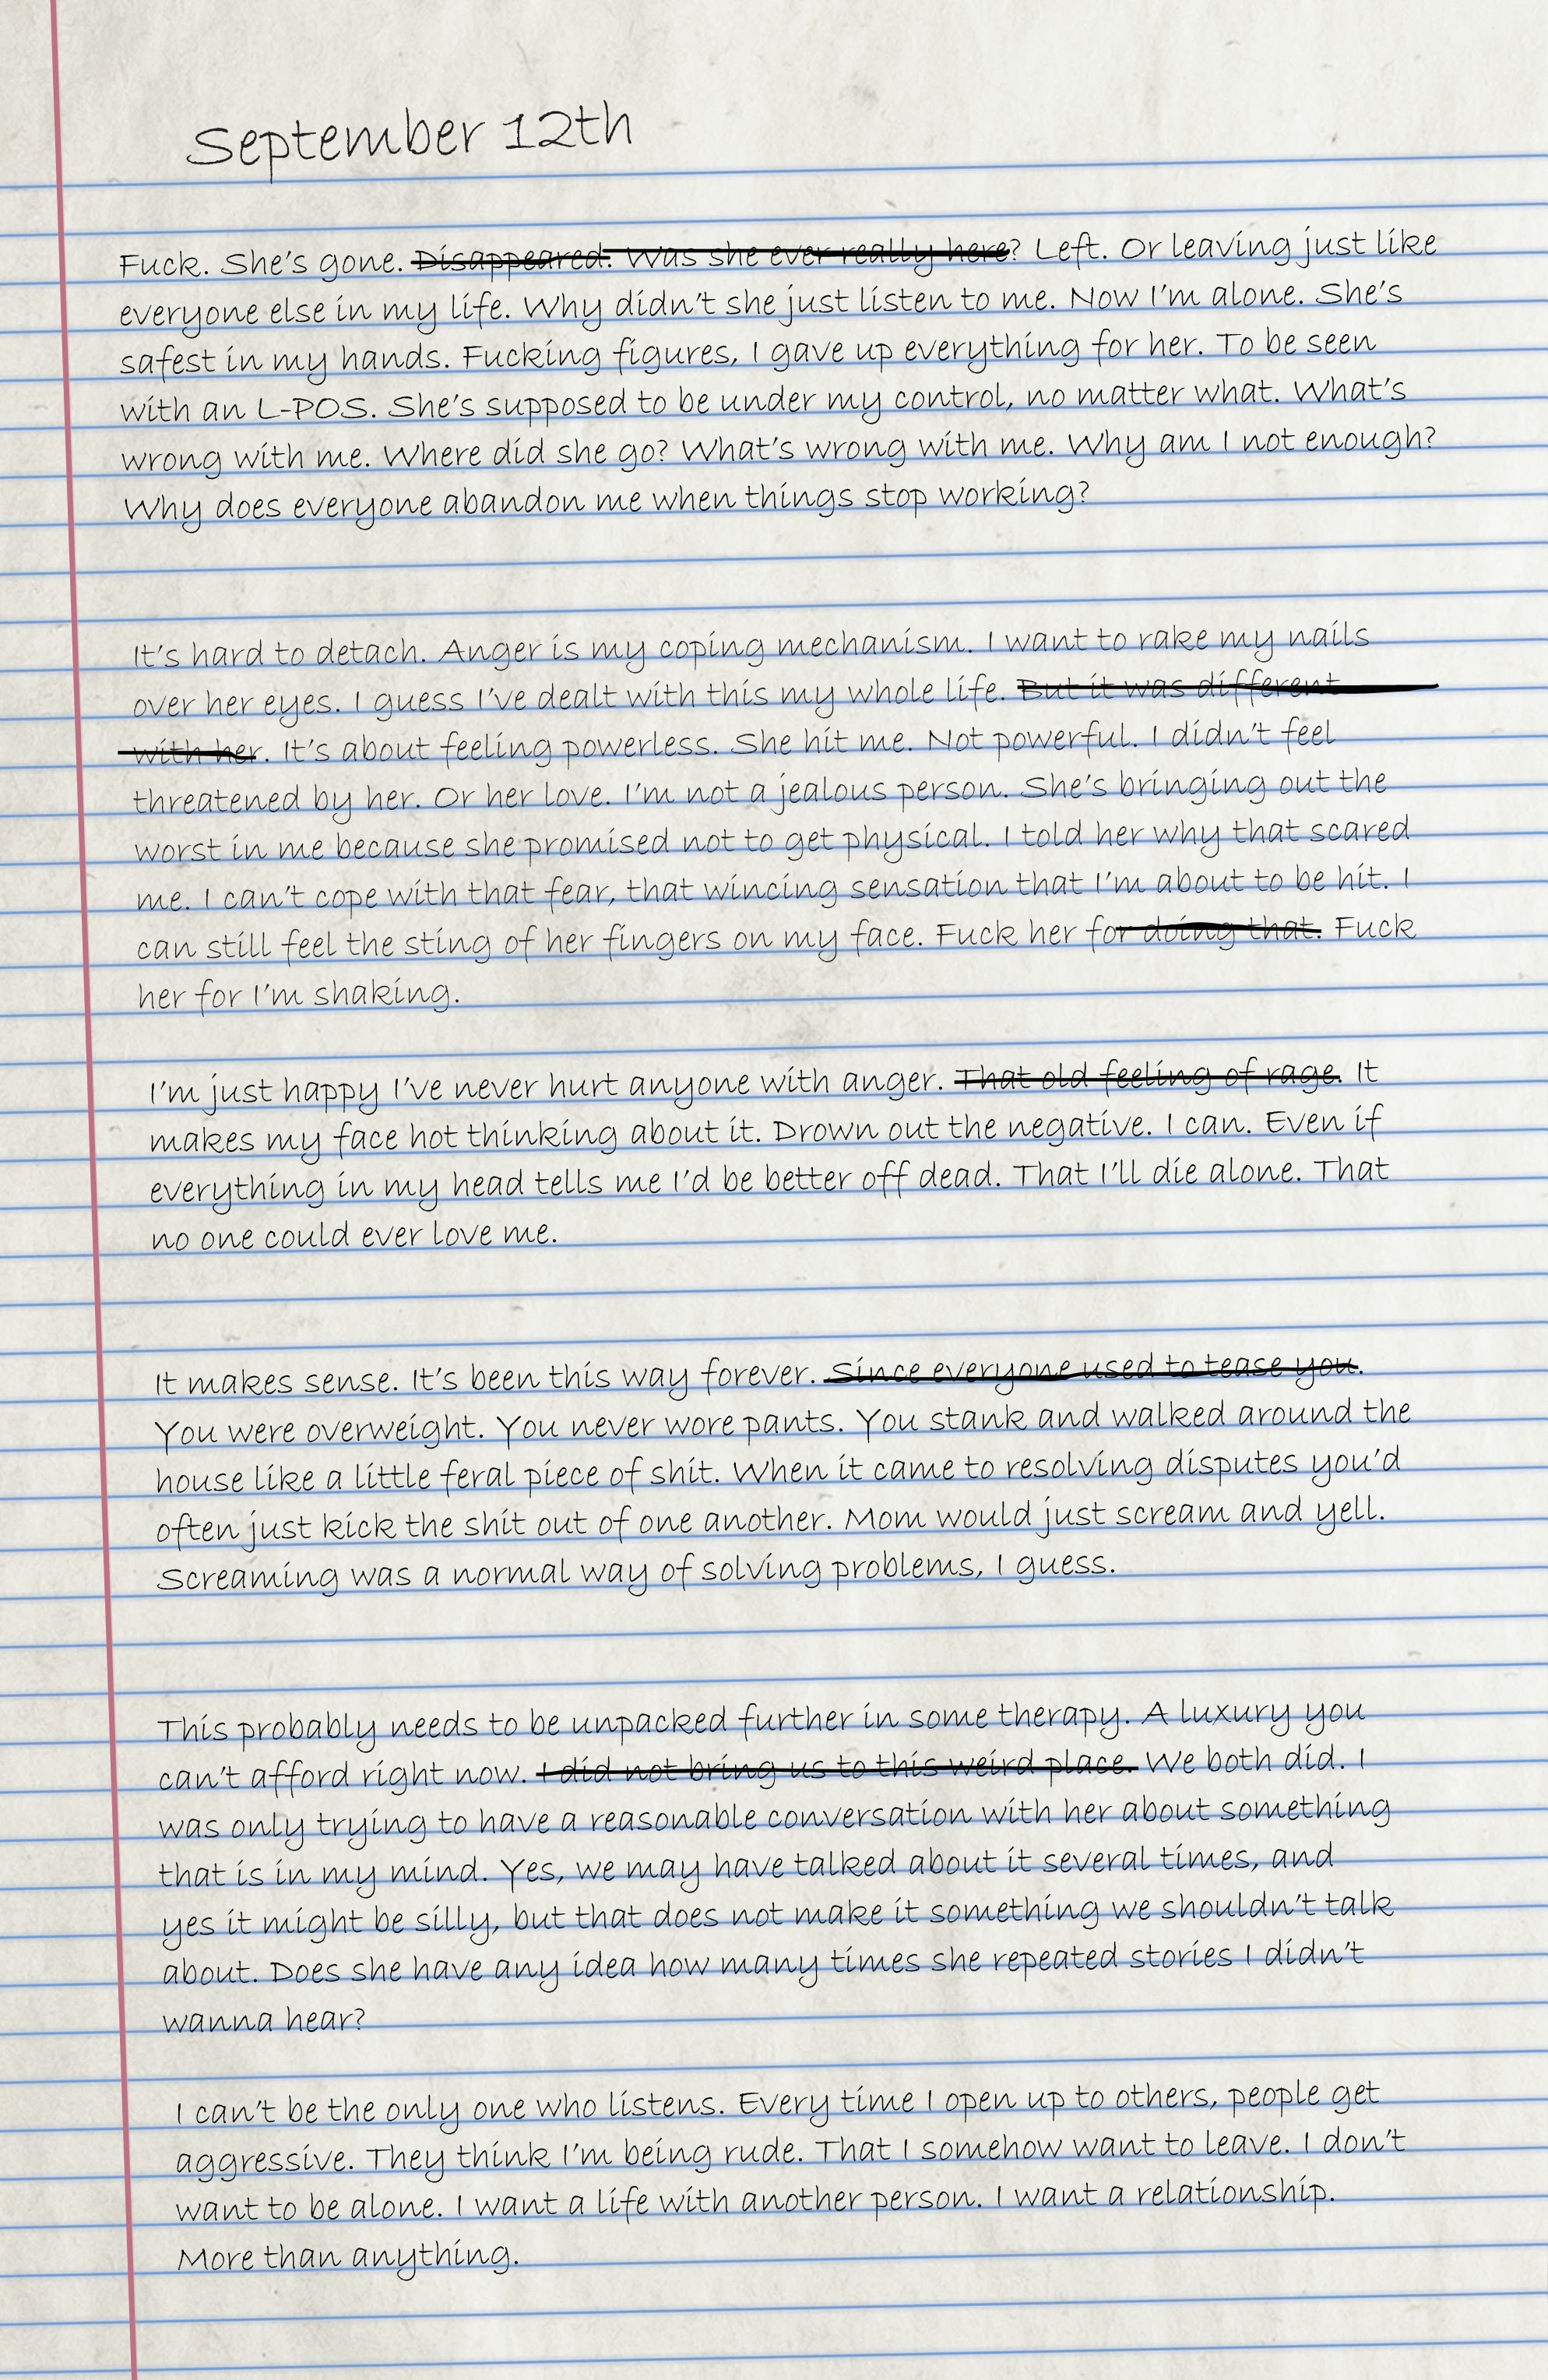 September 12th
Fuck. She's gone. Disappeared. Was she ever really here? Left. Or leaving just like
everyone else in my life. Why didn't she just listen to me. Now I'm alone. She's
safest in my hands. Fucking figures, I gave up everything for her. To be seen
with an L-POS. She's supposed to be under my control, no matter what. What's
wrong with me. Where did she go? What's wrong with me. Why am I not enough?
Why does everyone abandon me when things stop working?
It's hard to detach. Anger is my coping mechanism. I want to rake my nails
over her eyes. I guess I've dealt with this my whole life. But it was different
with her. It's about feeling powerless. She hit me. Not powerful. I didn't feel
threatened by her. Or her love. I'm not a jealous person. She's bringing out the
worst in me because she promised not to get physical. I told her why that scared
me. I can't cope with that fear, that wincing sensation that I'm about to be hit. I
can still feel the sting of her fingers on my face. Fuck her for doing that. Fuck
her for I'm shaking.
I'm just happy I've never hurt anyone with anger. That old feeling of rage. It
makes my face hot thinking about it. Drown out the negative. I can. Even if
everything in my head tells me I'd be better off dead. That I'll die alone. That
no one could ever love me.
It makes sense. It's been this way forever. Since everyone used to tease you.
You were overweight. You never wore pants. You stank and walked around the
house like a little feral piece of shit. When it came to resolving disputes you'd
often just kick the shit out of one another. Mom would just scream and yell.
Screaming was a normal way of solving problems, I guess.
This probably needs to be unpacked further in some therapy. A luxury you
can't afford right now. I did not bring us to this weird place. We both did. I
was only trying to have a reasonable conversation with her about something
that is in my mind. Yes, we may have talked about it several times, and
yes it might be silly, but that does not make it something we shouldn't talk
about. Does she have any idea how many times she repeated stories I didn't
wanna hear?
I can't be the only one who listens. Every time I open up to others, people get
aggressive. They think I'm being rude. That I somehow want to leave. I don't
want to be alone. I want a life with another person. I want a relationship.
More than anything.